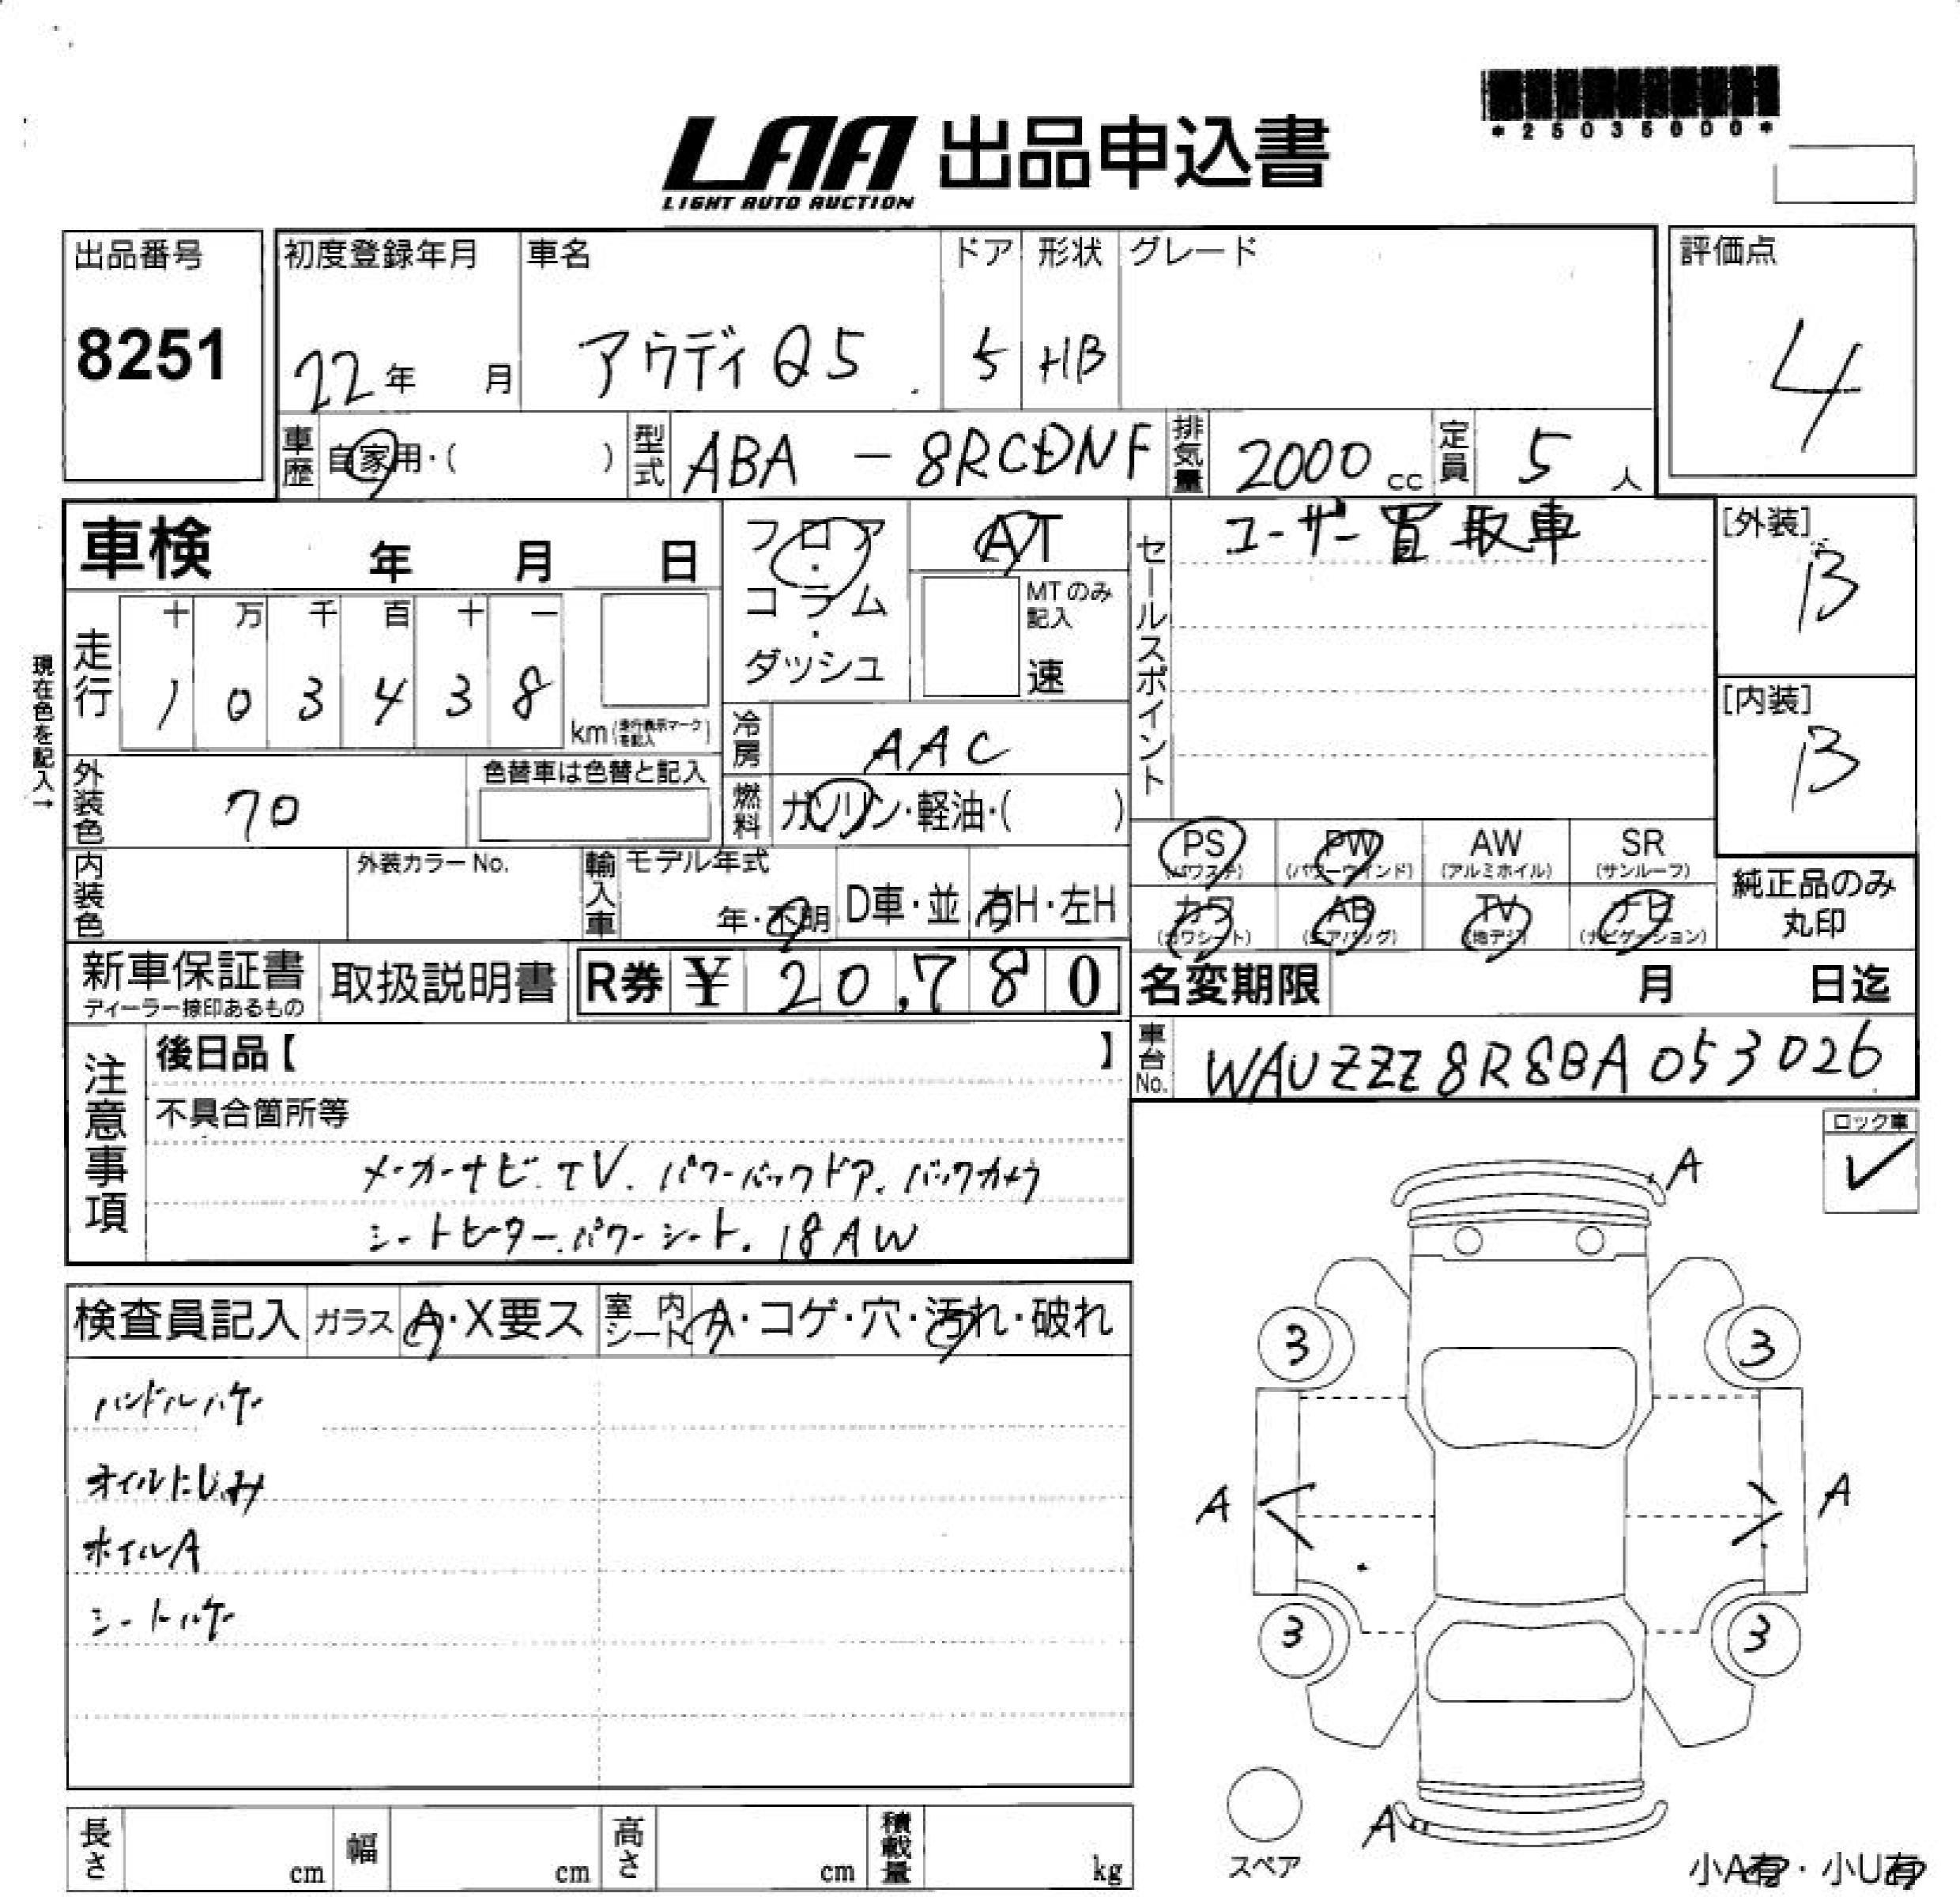 *25035000*
LAA 出品申込書
LIGHT AUTO AUCTION
出品番号
8251
初度登録年月
22年 月
車名
アウディ Q5
ドア
5
形状
HB
グレード
評価点
4
車歴 自家用・( )
型式 ABA - 8RCDNF
排気量 2000 cc
定員 5 人
車検 年 月 日
フロア・コラム・ダッシュ
AT
MTのみ記入
速
セールスポイント
ユーザー買取車
[外装]
B
[内装]
B
現在色を記入→
走行
十 万 千 百 十 一
1 0 3 4 3 8
km (走行表示マークを記入)
冷房 AAC
燃料 ガソリン・軽油・( )
外装色 70
色替車は色替と記入
内装色
外装カラーNo.
輸入車
モデル年式
年・不明
D車・並
右H・左H
PS (パワステ)
PW (パワーウィンド)
AW (アルミホイル)
SR (サンルーフ)
カワ (カワシート)
AB (エアバッグ)
TV (地デジ)
ナビ (ナビゲーション)
純正品のみ
丸印
新車保証書
ディーラー捺印あるもの
取扱説明書
R券 ¥ 20,780
名変期限 月 日迄
車台No. WAUZZZ8R8BA053026
注意事項
後日品【 】
不具合箇所等
メーカーナビ.TV.パワーバックドア.バックカメラ
シートヒーター.パワーシート.18AW
ロック車
✓
検査員記入
ガラス A・X要ス
室内シート A・コゲ・穴・汚れ・破れ
ハンドルハゲ
オイルにじみ
ホイルA
シートハゲ
A
3
3
A
A
3
3
A
スペア
小A有・小U有
長さ cm
幅 cm
高さ cm
積載量 kg